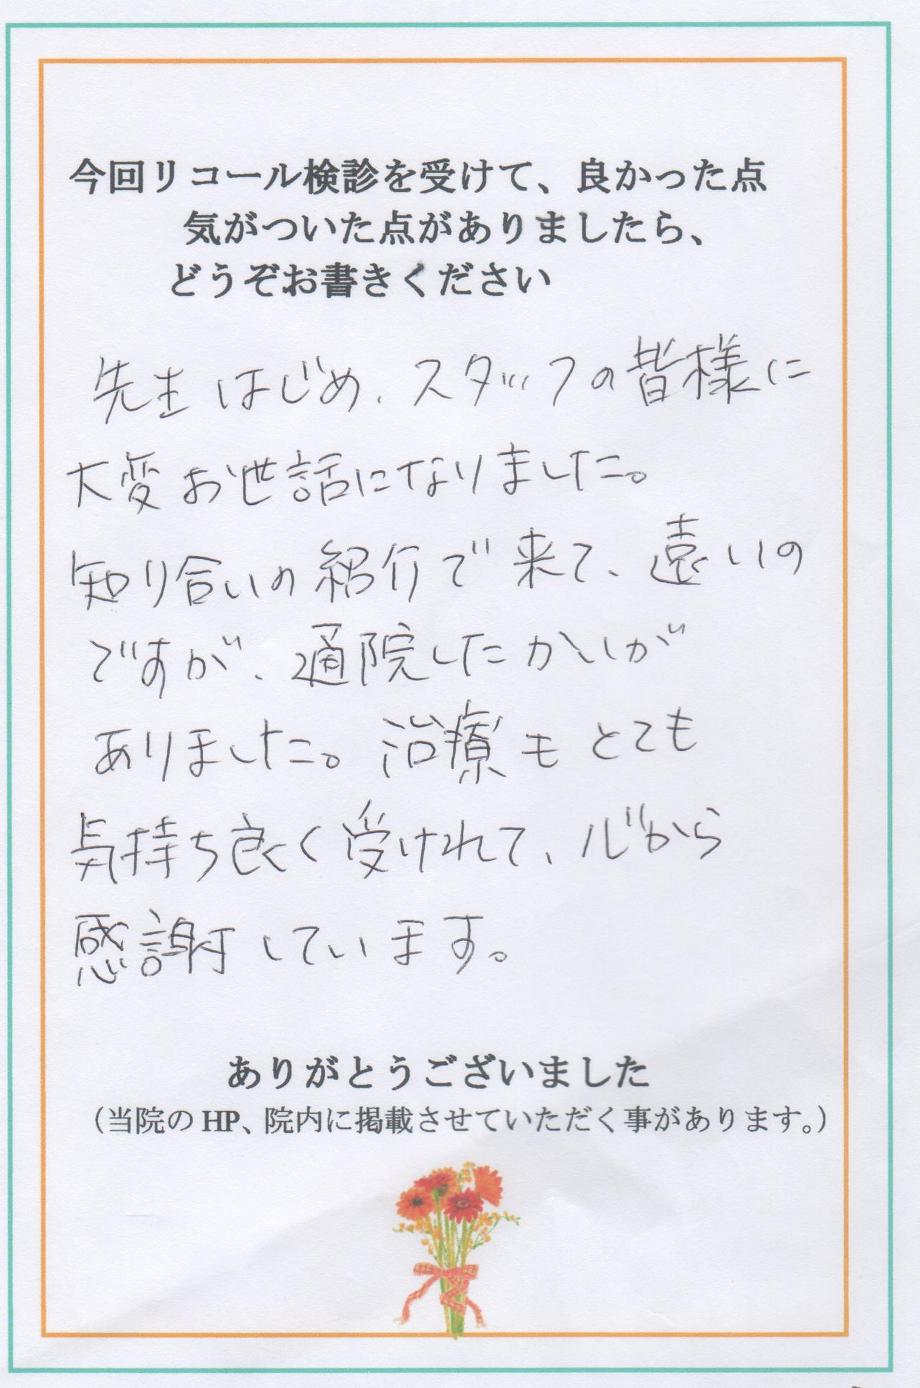 今回リコール検診を受けて、良かった点
気がついた点がありましたら、
どうぞお書きください
先生はじめ、スタッフの皆様に
大変お世話になりました。
知り合いの紹介で来て、遠いの
ですが、通院したかいが
ありました。治療もとても
気持ち良く受けれて、心から
感謝しています。
ありがとうございました
（当院のHP、院内に掲載させていただく事があります。）